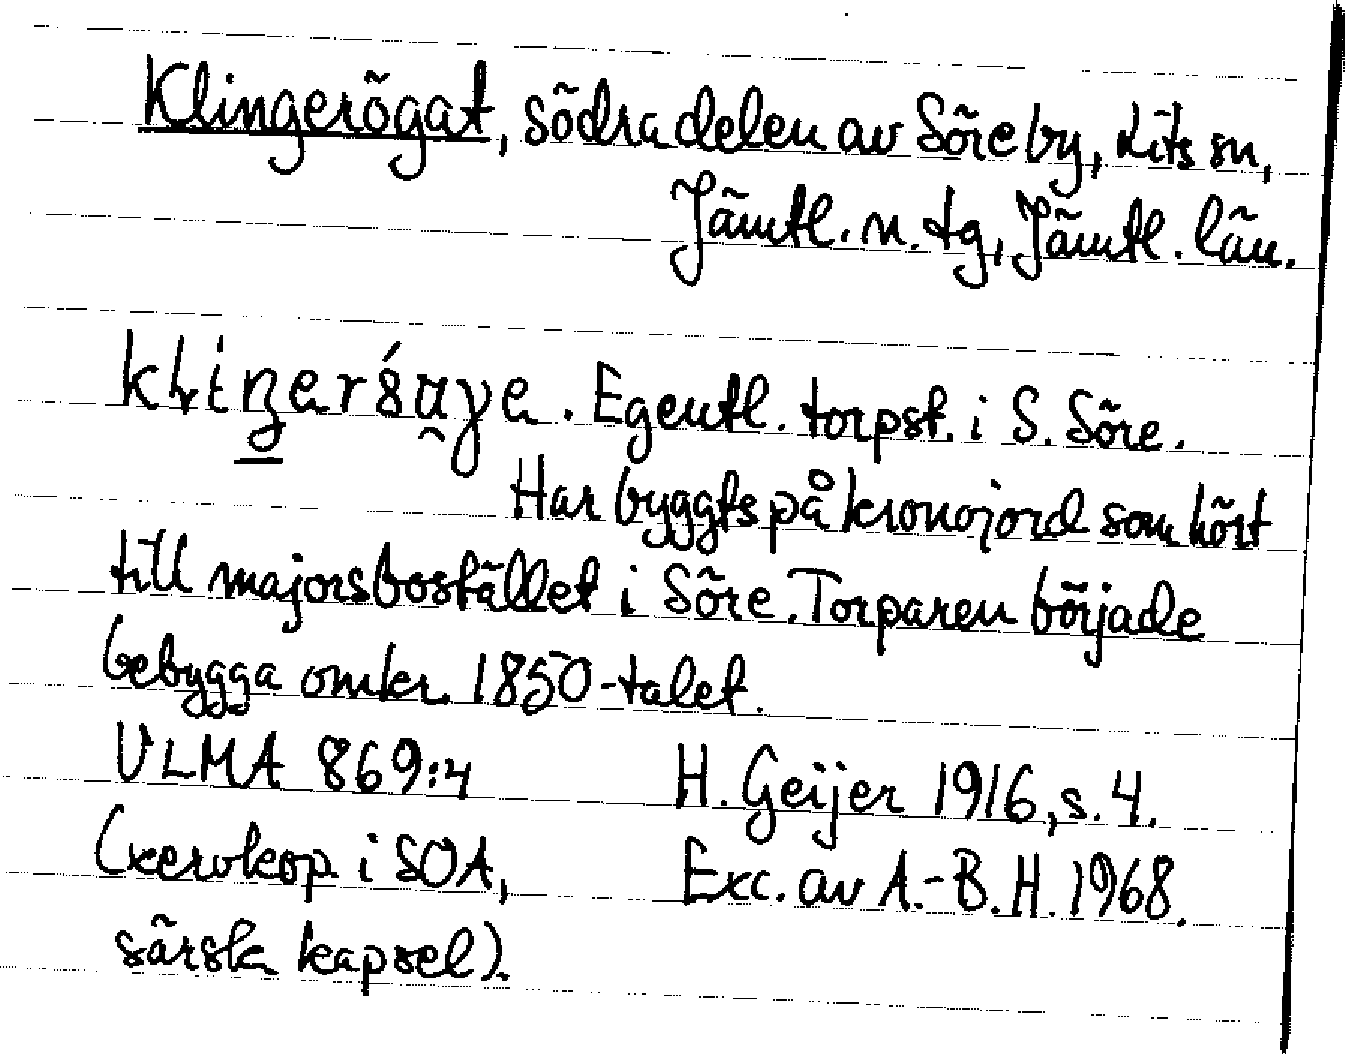 Klingerögat, södra delen av Söre by, Lits sn,
Jämtl. n. tg, Jämtl. län.
Egentl. torpst. i S. Söre.
Har byggts på kronojord som hört
till majorsbostället i Söre. Torparen började
bebygga omkr. 1850-talet.
ULMA 869:4 H. Geijer 1916, s. 4.
(xerokop i SOA, Exc. av A.-B. H. 1968.
särsk kapsel).